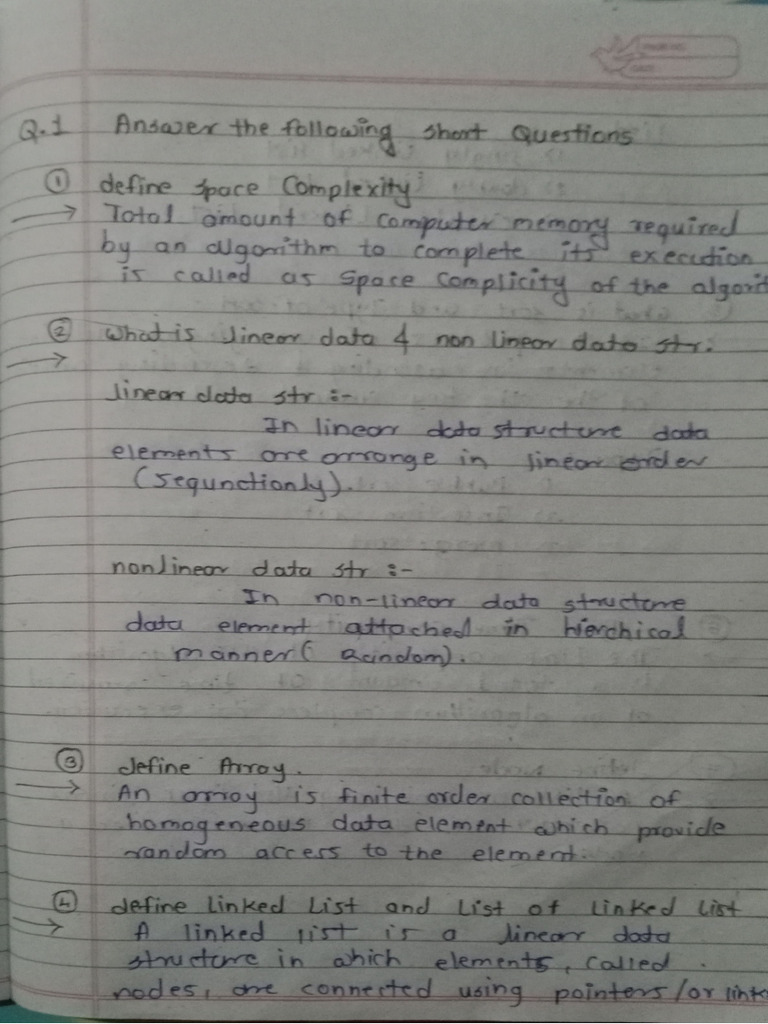 Q.1 Answer the following short Questions
① define Space Complexity
→ Total amount of computer memory required
by an algorithm to complete its execution
is called as Space Complicity of the algorit
② What is linear data & non linear data str.
→
linear data str :-
In linear data structure data
elements are arrange in linear order
(Sequnctionly).
nonlinear data str :-
In non-linear data structure
data element attached in hierchical
manner ( Random).
③ define Array.
→ An array is finite order collection of
homogeneous data element which provide
random access to the element.
④ define Linked List and List of Linked List
→ A linked list is a linear data
structure in which elements, called
nodes, are connected using pointers/or link